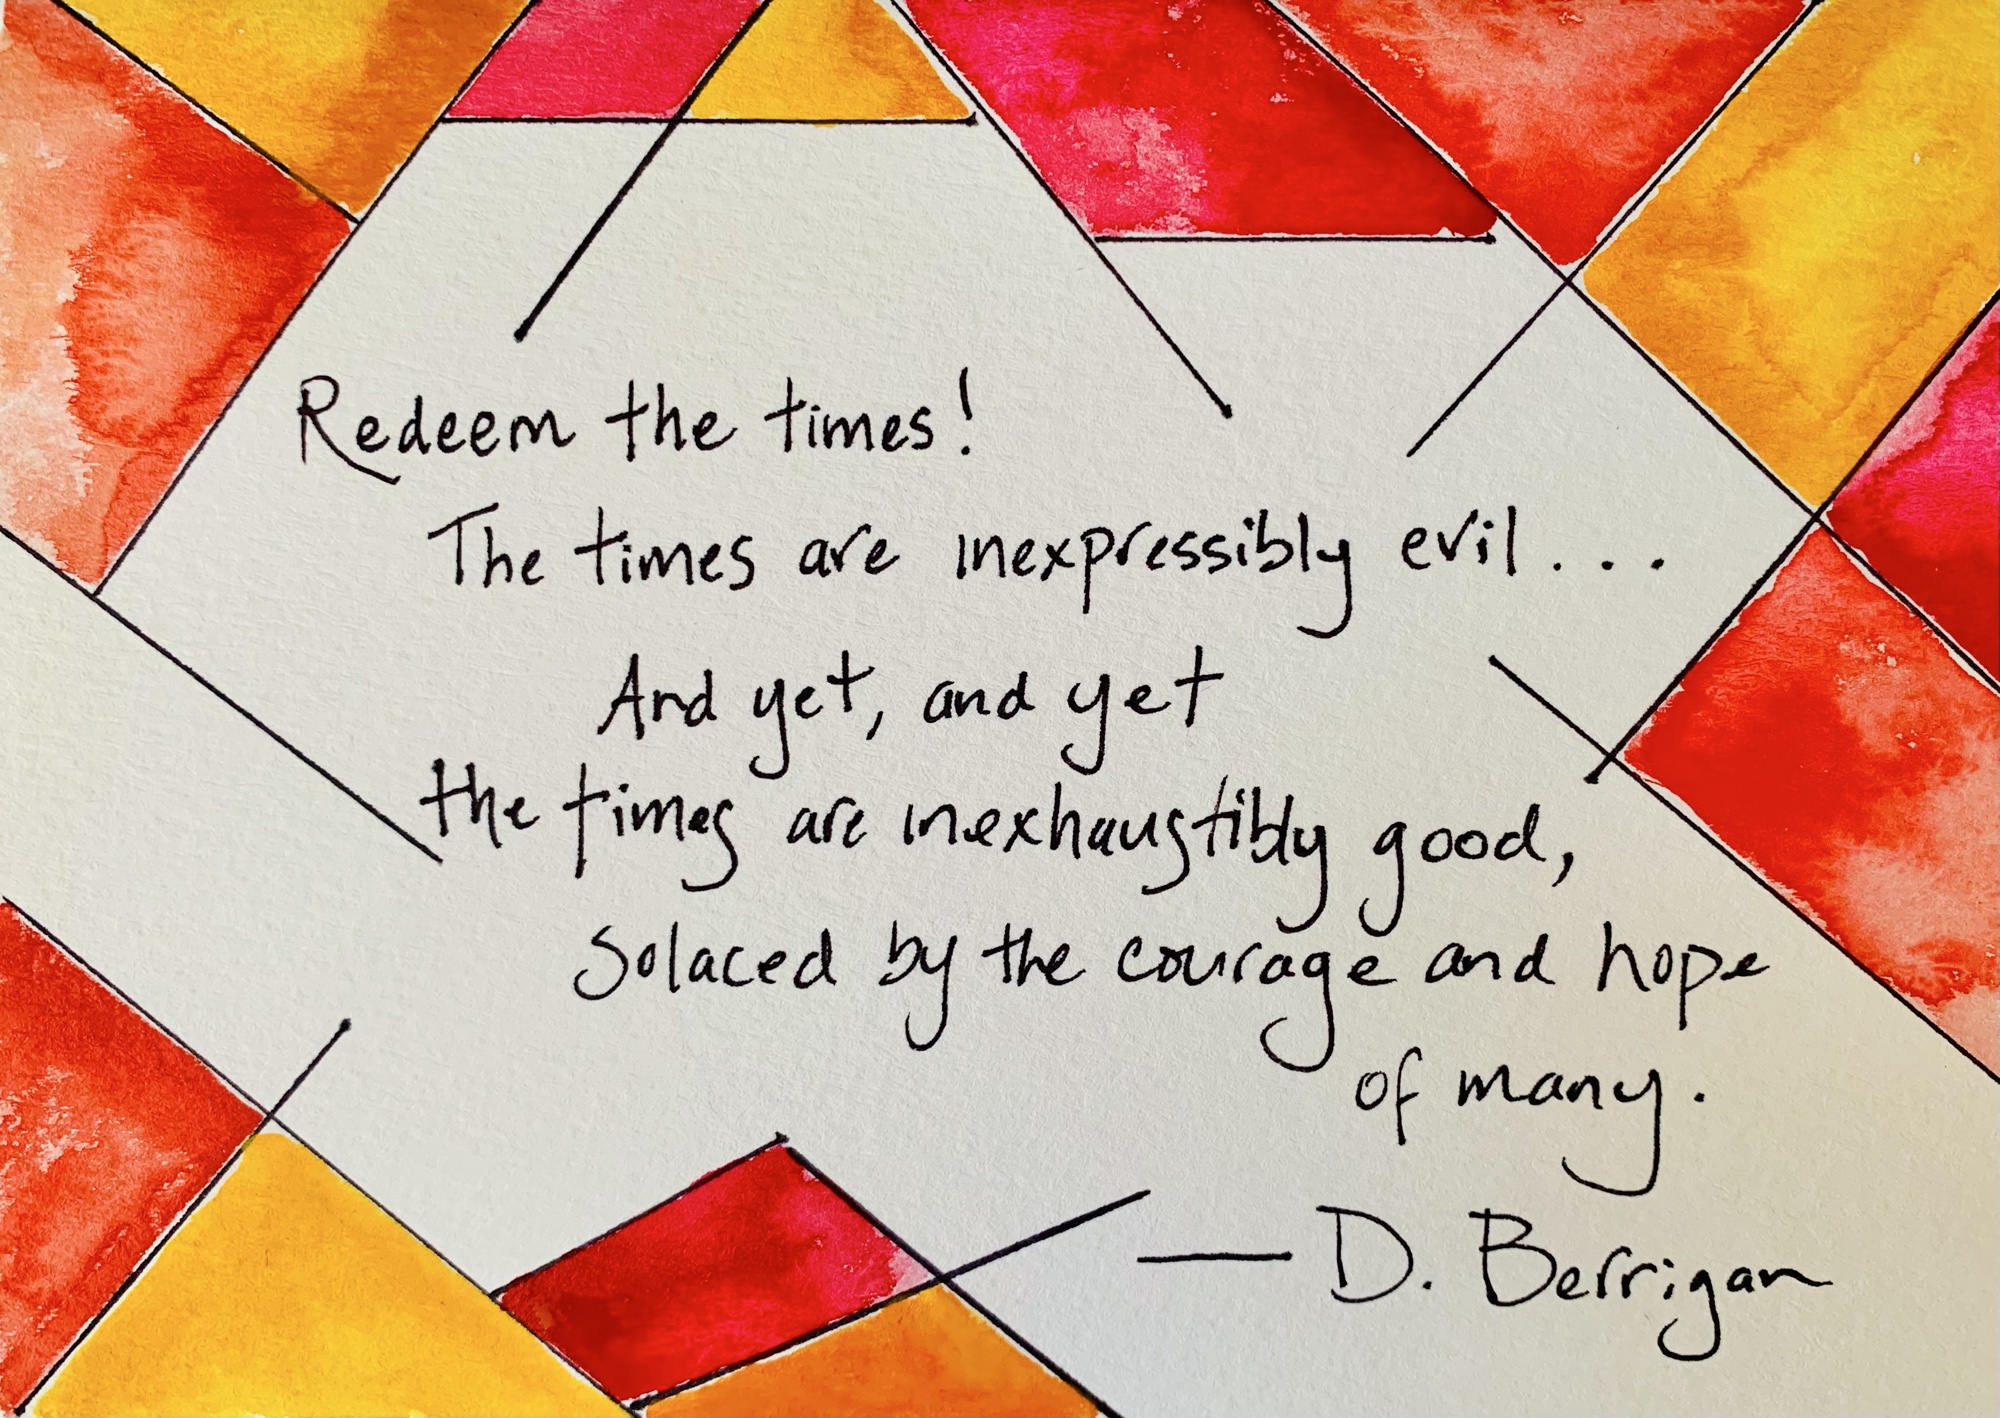 Redeem the times!
The times are inexpressibly evil...
And yet, and yet
the times are inexhaustibly good,
solaced by the courage and hope
of many.
— D. Berrigan